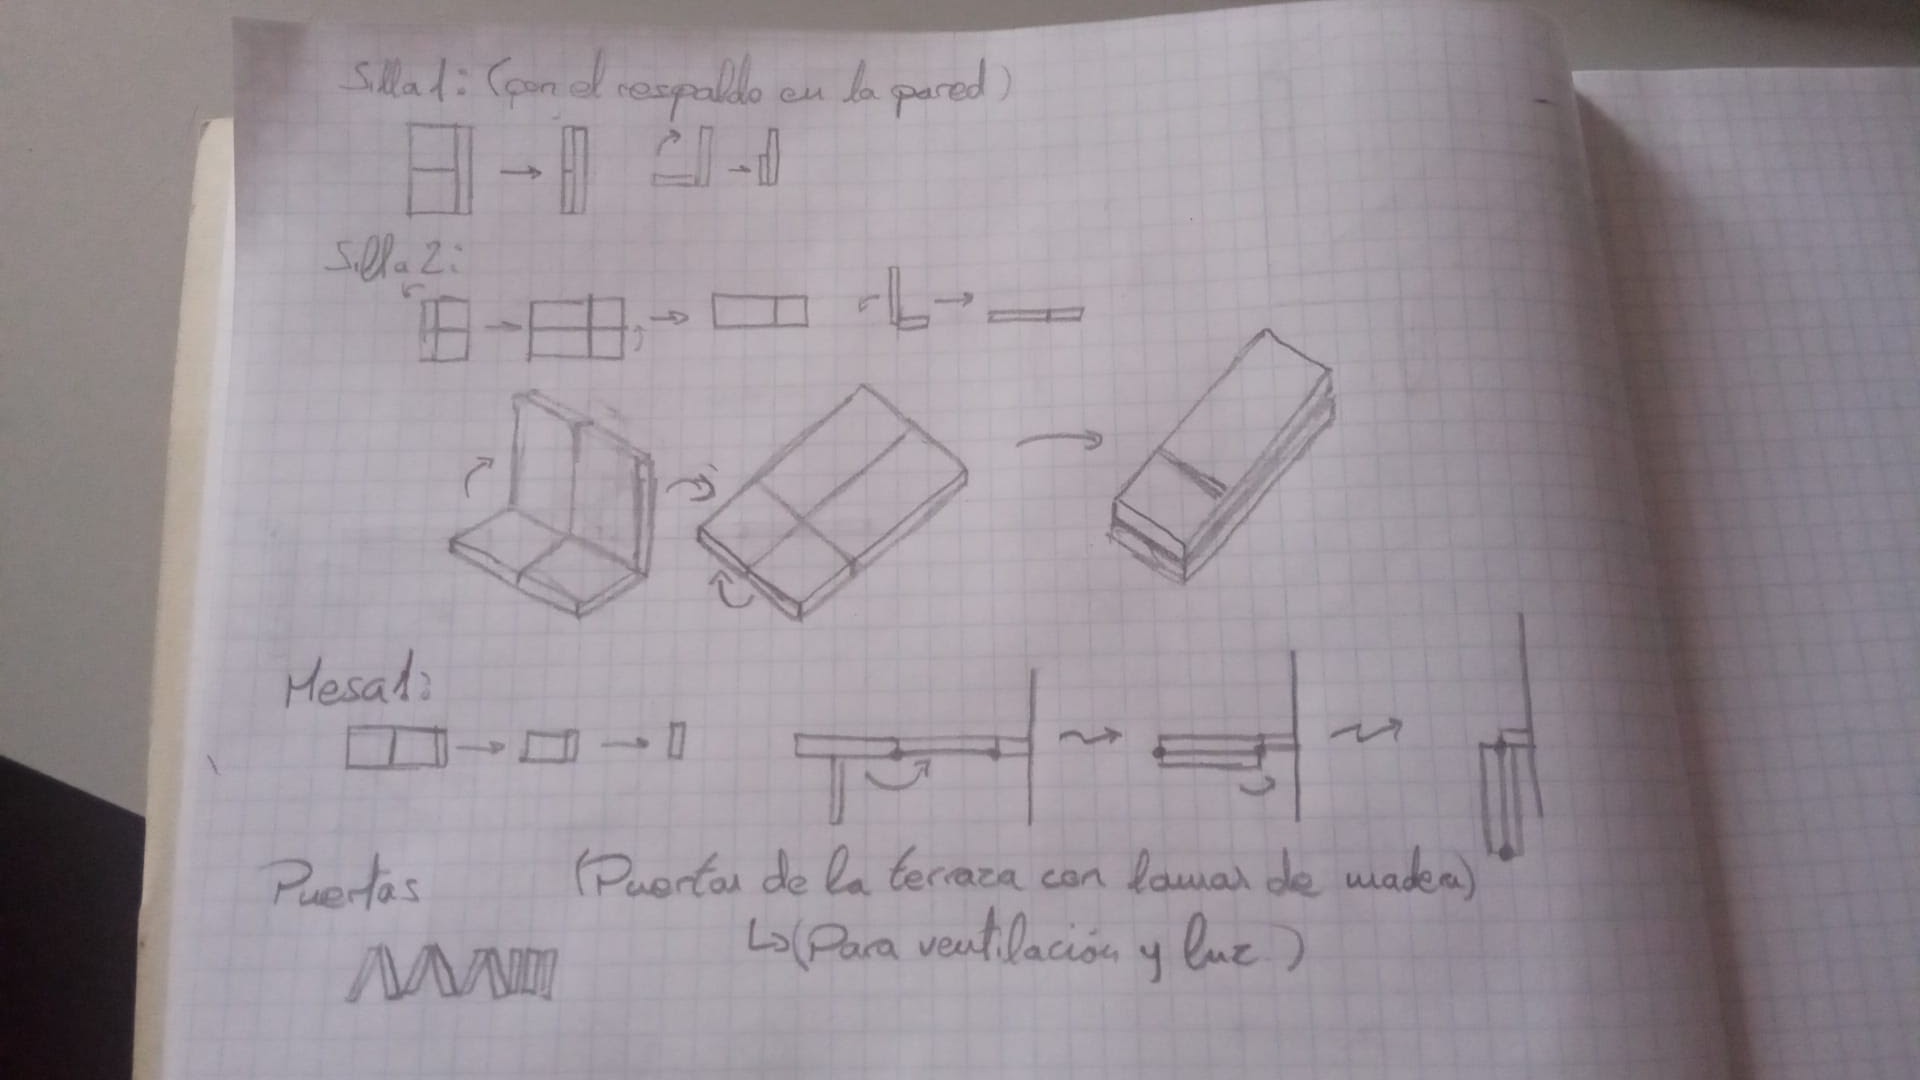 Silla 1: (con el respaldo en la pared)
Silla 2:
Mesa 1:
Puertas (Puertas de la terraza con lamas de madera)
↳ (Para ventilación y luz)